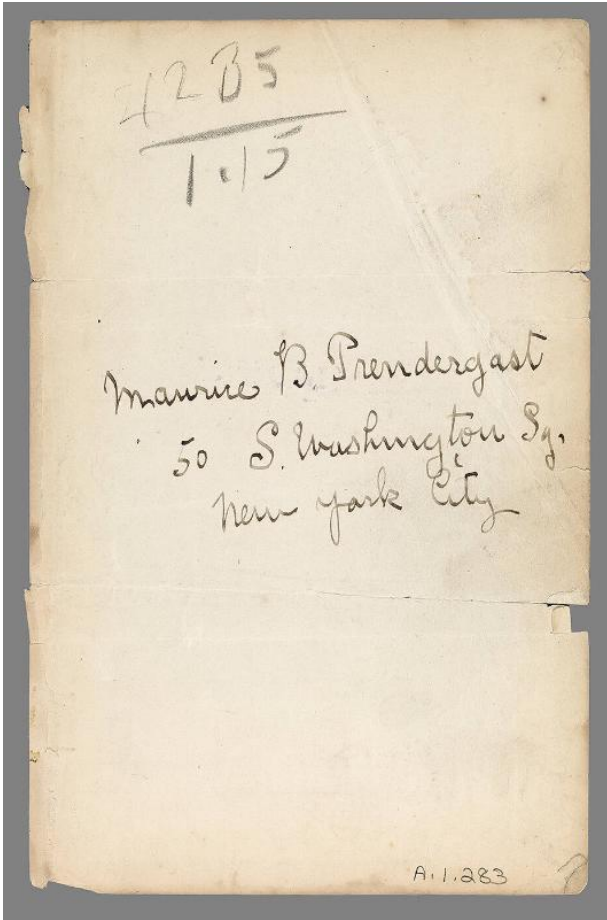 42B5
1.15
Maurice B. Prendergast
50 S. Washington Sq.
New York City
A.1.283